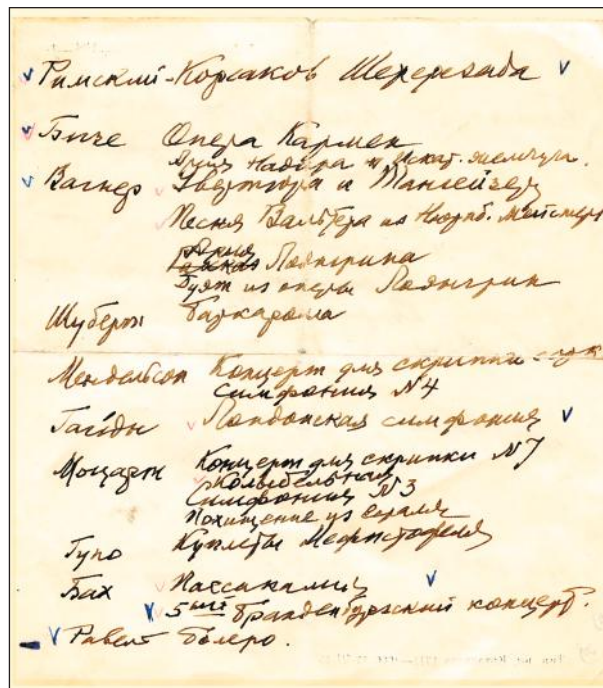 Римский-Корсаков Шехерезада
Бизе Опера Кармен
Ария Надира и Искат. жемчуга
Вагнер Увертюра и Тангейзер
Песня Вальтера из Нюрнб. Мейстерз
Ария Лоэнгрина
Дуэт из оперы Лоэнгрин
Шуберт Баркаролла
Мендельсон Концерт для скрипки
симфония №4
Гайдн Лондонская симфония
Моцарт Концерт для скрипки №7
Колыбельная
Симфония №3
Похищение из сераля
Гуно Куплеты Мефистофеля
Бах Пассакалия
5ый Бранденбургский концерт.
Равель Болеро.